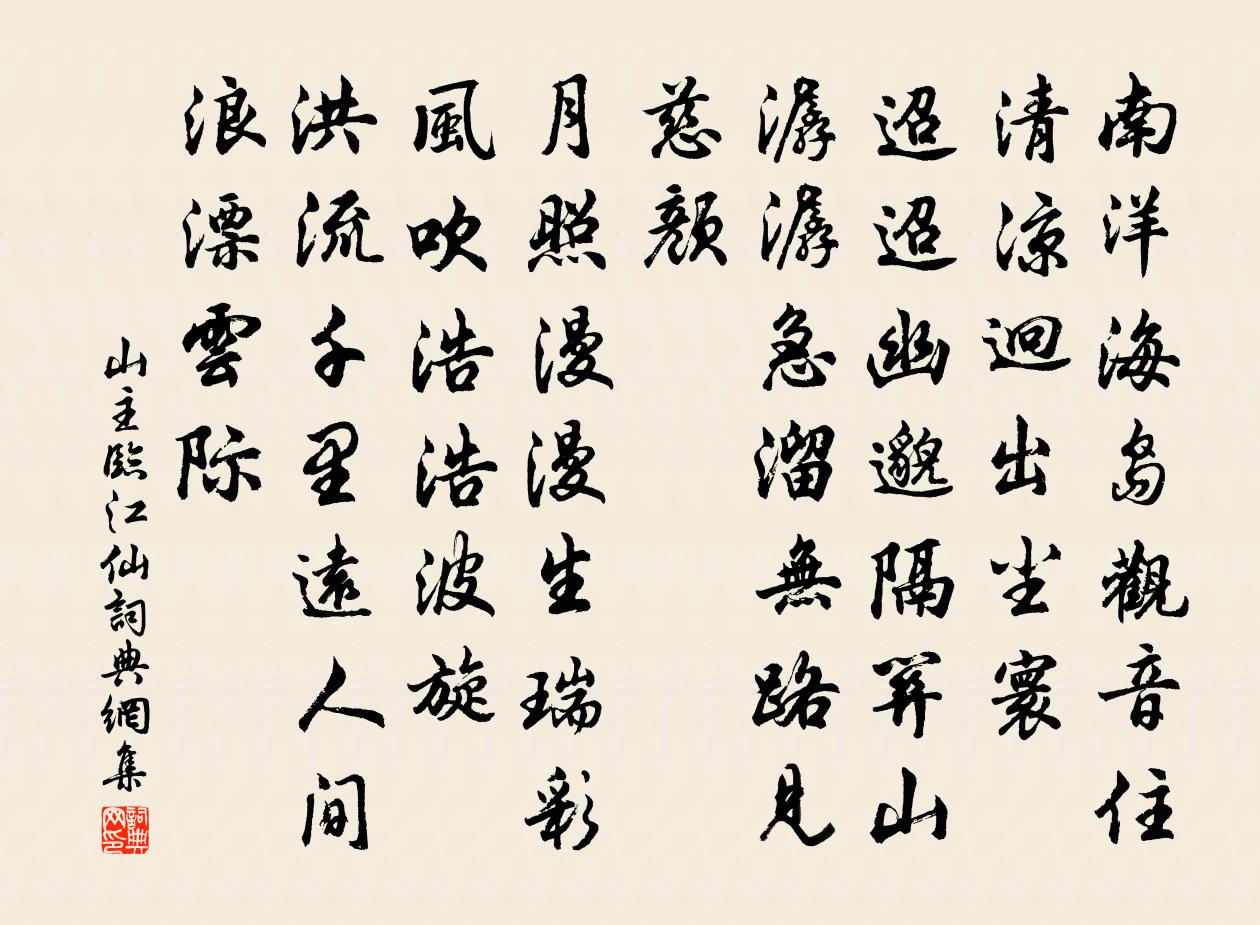 南洋海岛觀音住
清涼迥出尘寰
迢迢幽邈隔關山
潺潺急溜無路見
慈顏
月照漫漫生瑞彩
風吹浩浩波旋
洪流千里遠人間
浪漂雲际
山主臨江仙詞典網集
詞典网印